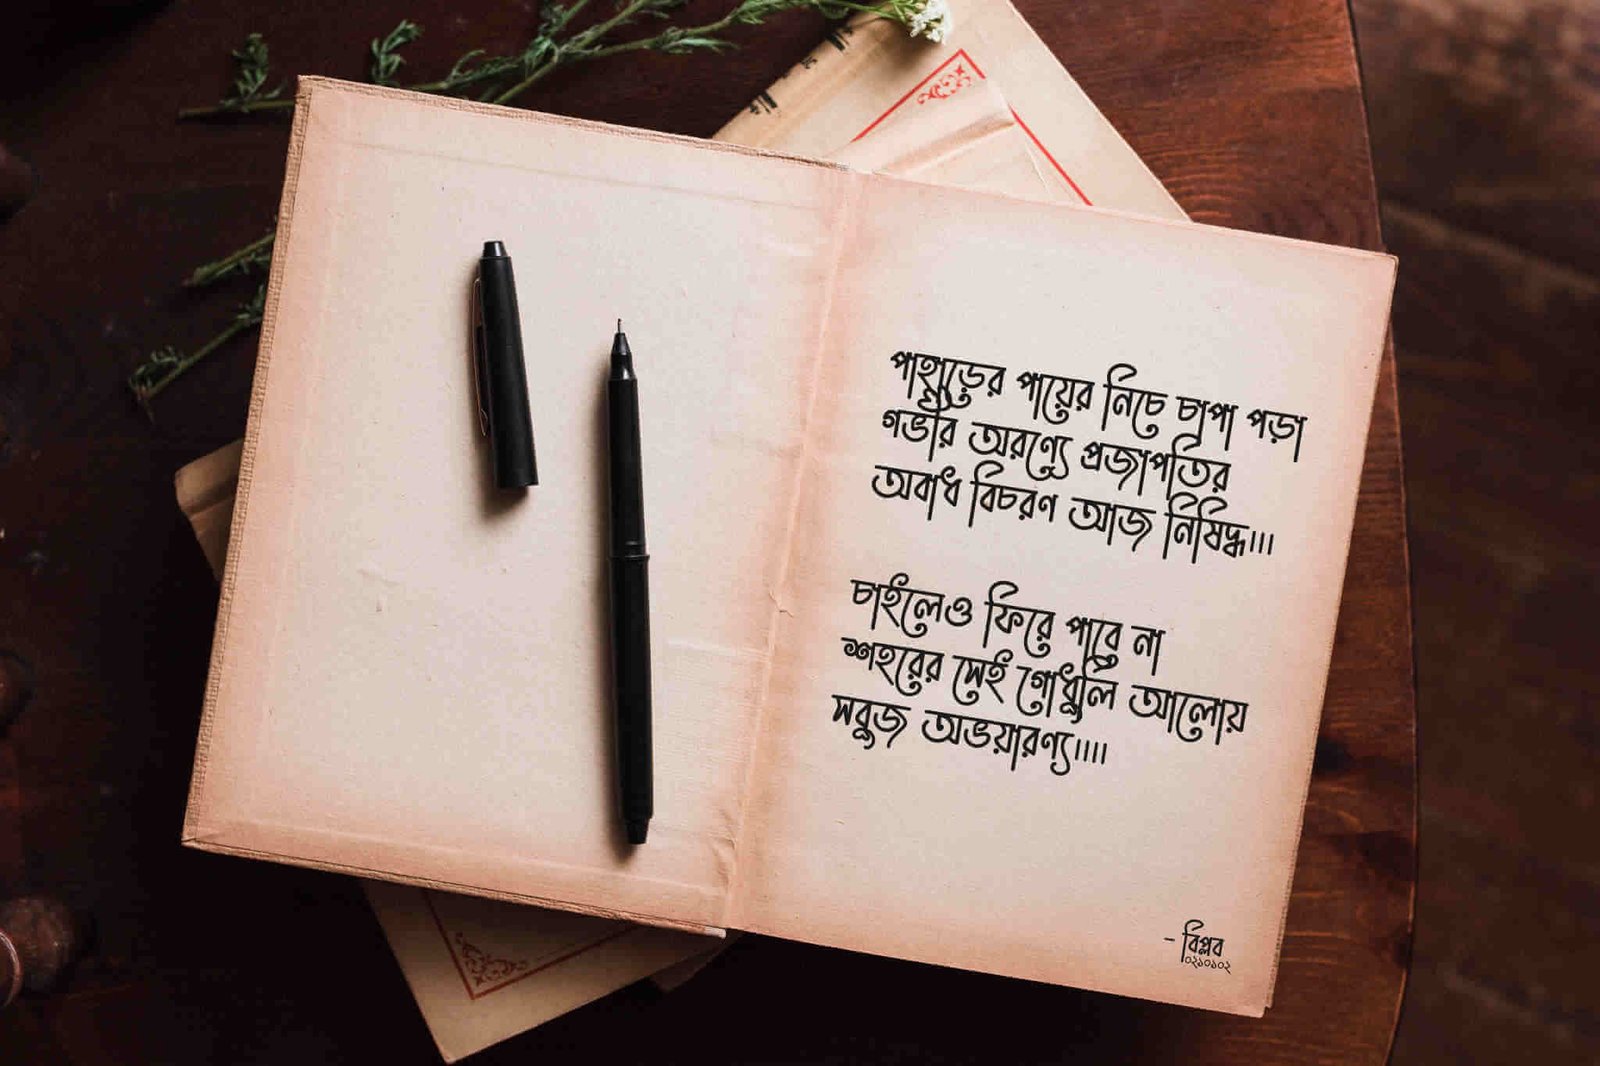 পাহাড়ের পায়ের নিচে চাপা পড়া
গভীর অরণ্যে প্রজাপতির
অবাধ বিচরণ আজ নিষিদ্ধ।।।
চাইলেও ফিরে পাবে না
শহরের সেই গোধুলি আলোয়
সবুজ অভয়ারণ্য।।।।
- বিপ্লব
০২১০১০২